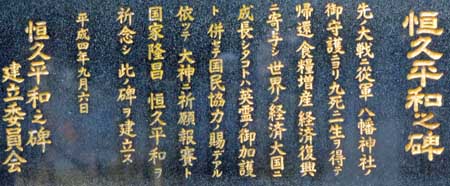 恒久平和之碑
先ノ大戦ニ従軍 八幡神社ノ
御守護ニヨリ九死ニ一生ヲ得テ
帰還 食糧増産 経済復興
ニ寄与シ 世界ノ経済大国ニ
成長シタコトハ英霊ノ御加護
ト 併セテ国民協力ノ賜デアル
依ッテ 大神ニ祈願報賽ト
国家隆昌 恒久平和ヲ
祈念シ 此碑ヲ建立ス
平成四年九月六日
恒久平和之碑
建立委員会